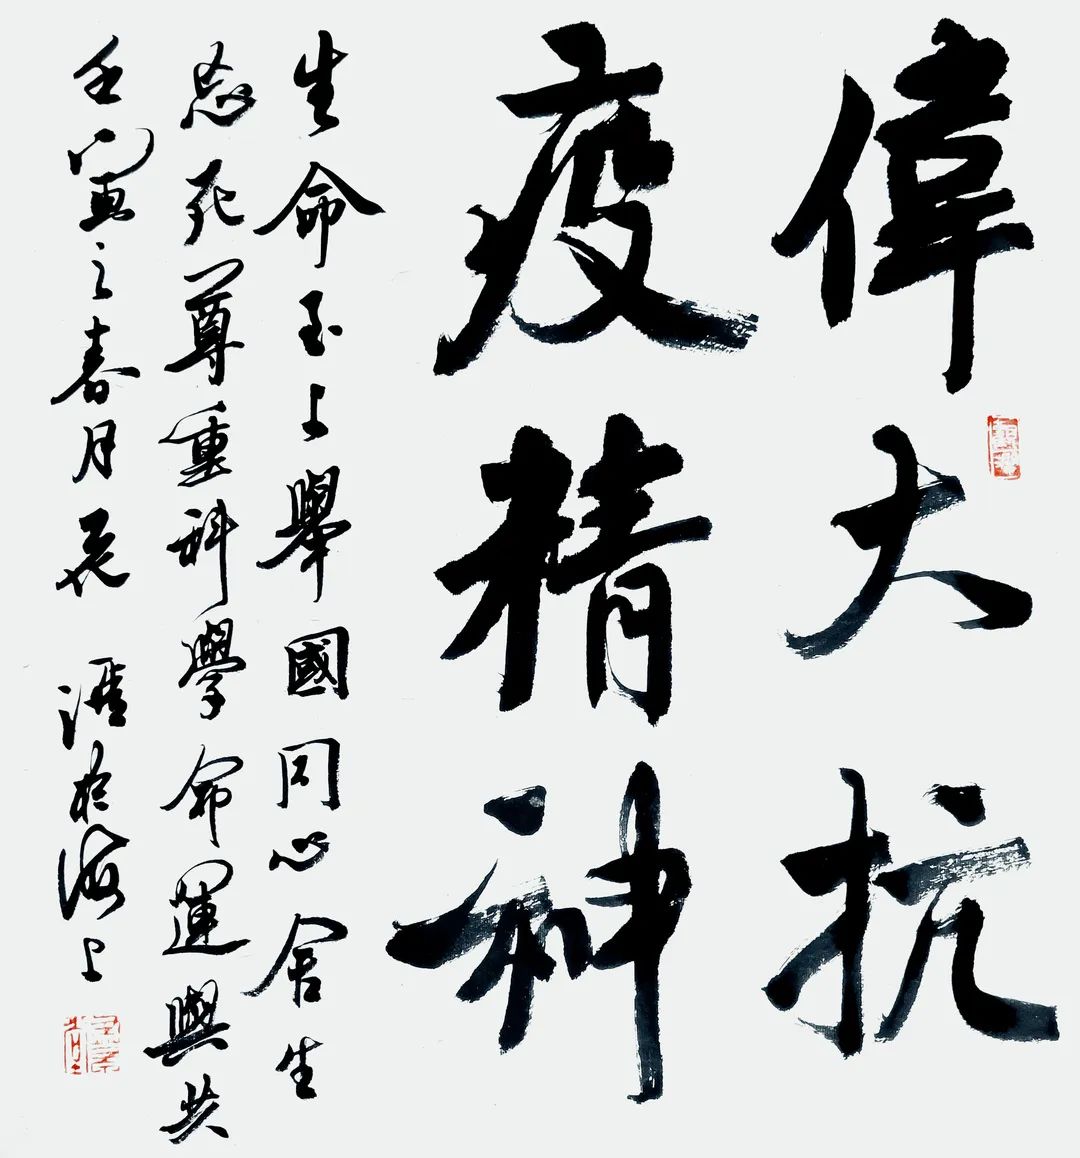 偉大抗
疫精神
生命至上舉國同心舍生
忘死尊重科學命運與共
壬寅之春月於海上